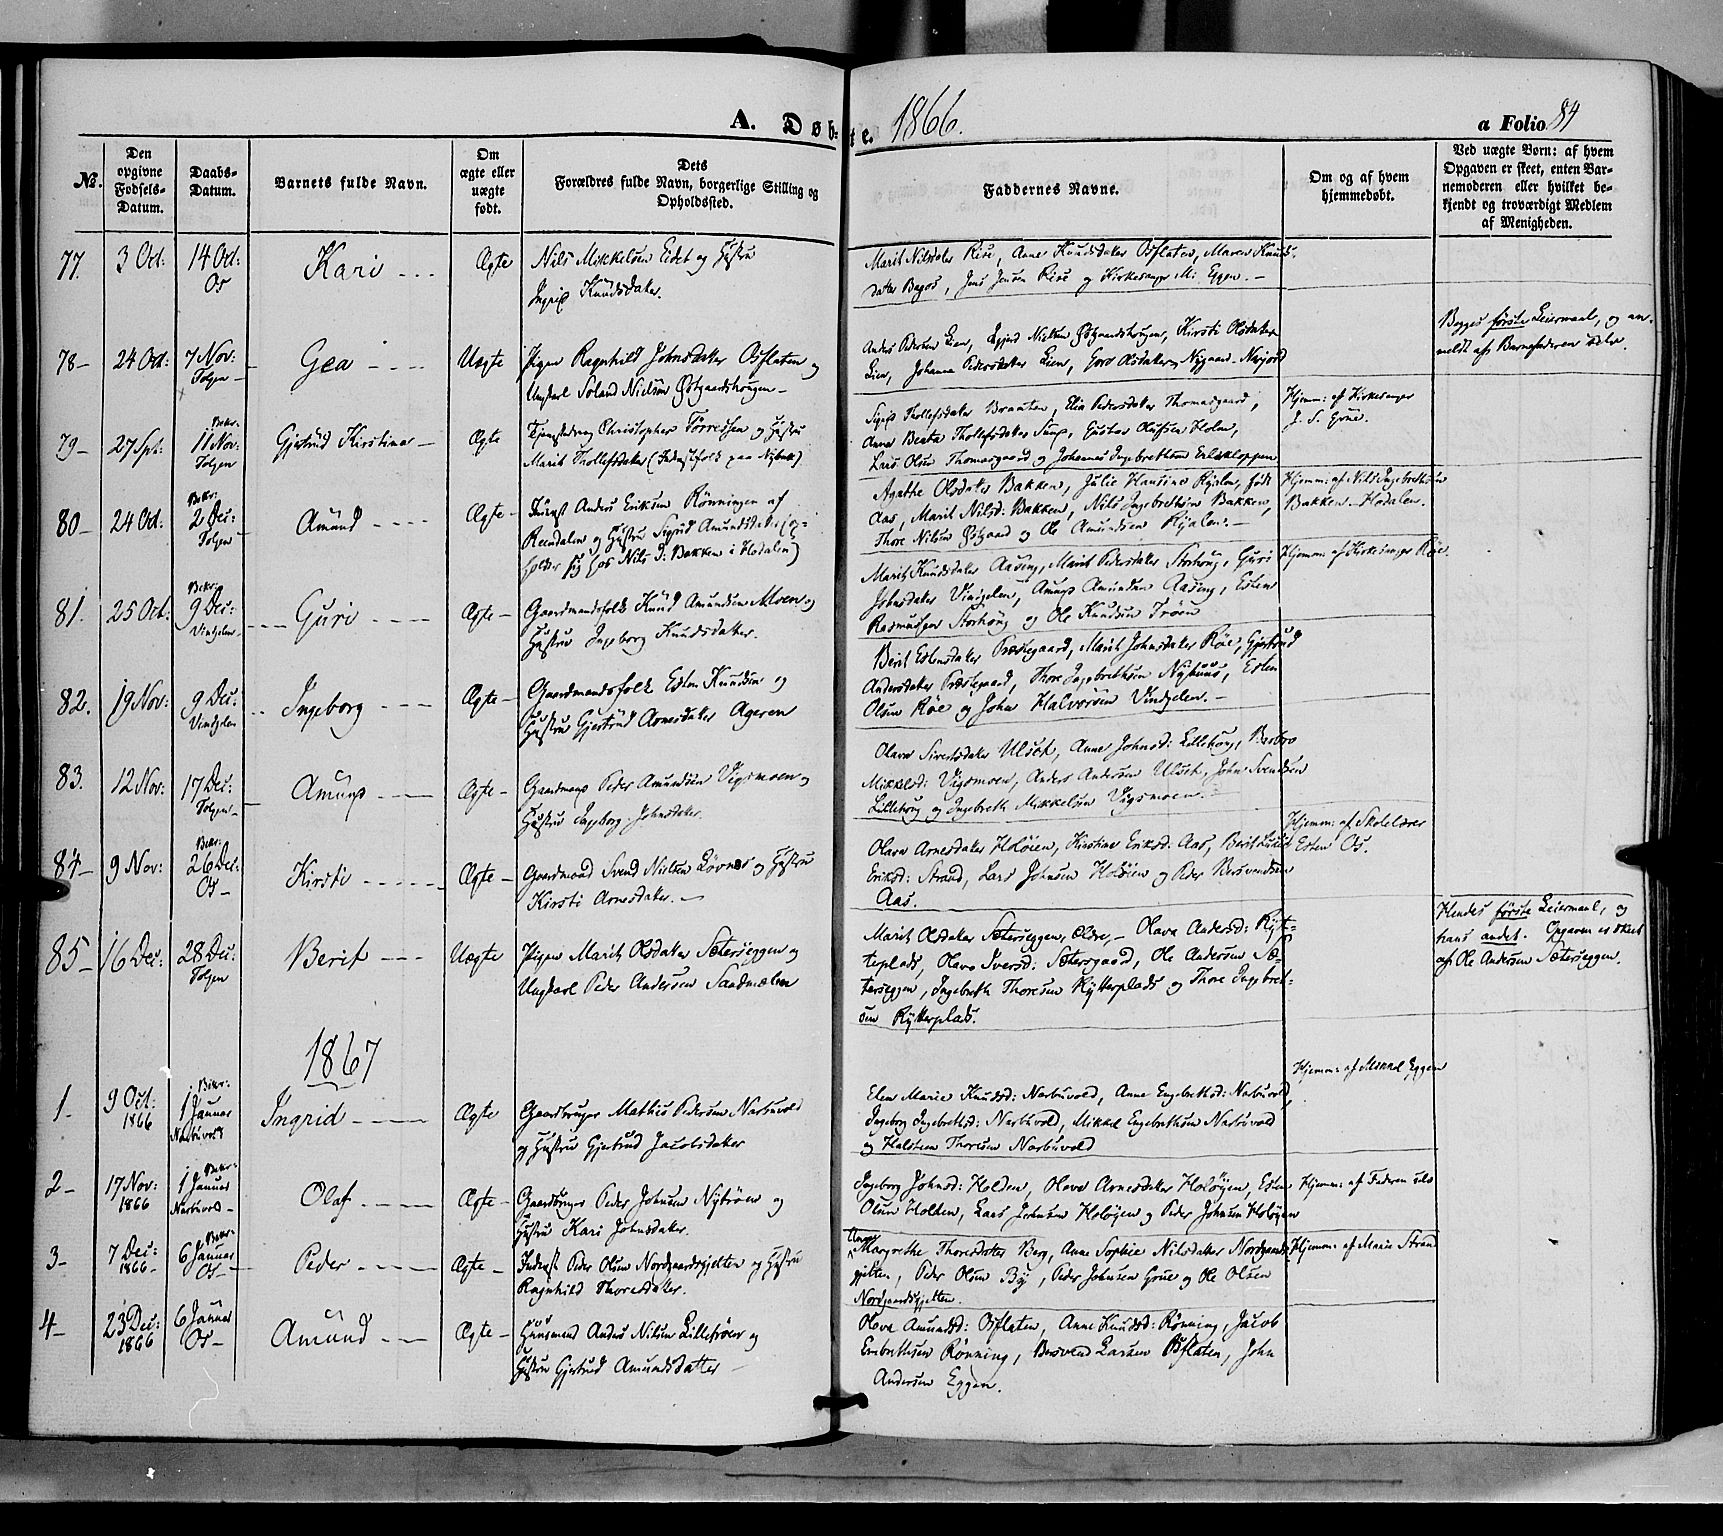 A. Døbte. 1866.
a Folio 84
No.
Den opgivne Fødsels-Datum.
Daabs-Datum.
Barnets fulde Navn.
Om ægte eller uægte født.
Dets Forældres fulde Navn, borgerlige Stilling og Opholdssted.
Faddernes Navne.
Om og af hvem hjemmedøbt.
Ved uægte Børn: af hvem Opgaven er skeet, enten Barnemoderen eller hvilket bekjendt og troværdigt Medlem af Menigheden.
77. 3 Oct: 14 Oct: Os Kari Ægte
Nils Mikkelsen Eidet og Hustru
Ingrid Knudsdatter.
Marit Nilsdatter Rise, Anne Knudsdatter Osflaten, Maren Knuds-
datter Bagos, Jens Jensen Rise og Kirkesanger M: Eggen.
78 24 Oct: 7 Nov: Tolgen Gea Uægte
Pigen Ragnhild Johnsdatter Osflaten og
Ungkarl Nielsen Østgaardshougen
Anders Pedersen Lien, Nielsen Østgaardshougen, Kirsti Olsdatter
Lien, Johanna Pedersdatter Lien, Goro Olsdatter Nygaard
Begges første Leiermaal, og an-
meldt af Barnefaderen selv.
79 27 Spt: Bekr: 11 Nov: Tolgen Gjertrud Kirstine Ægte
Christopher Torressen og Hustru
Marit Thollefsdatter (Inderstfolk paa Nyhus)
Sigrid Thollefsdatter Braaten, Elia Pedersdatter Thomasgaard,
Anne Benta Thollefsdatter, Gustav Olufsen Holm,
Lars Olsen Thomasgaard og Johannes Ingebrethsen Erlekloppen
Hjemm: af Kirkesanger
J. S. Grue.
80 24 Oct: Bekr: 2 Dec: Tolgen Amund Ægte
Inderst Anders Eriksen Rønningen af
Reendalen og Hustru Sigrid Amundsdatter (op-
holder sig hos Nils I: Bakken i Hodalen)
Agathe Olsdatter Bakken, Julie Hansine født
Aas, Marit Nilsd: Bakken, Nils Ingebrethsen Bakken,
Thore Nilsen Østgaard og Ole Amundsen
Hjemm: af Nils Ingebrethsen
Bakken Hodalen.
81. 25 Oct: Bekr: 9 Dec: Vingelen Guri Ægte
Gaardmandsfolk Knud Amundsen Moen og
Hustru Ingeborg Knudsdatter.
Marit Knudsdatter Aasing, Marit Pedersdatter Storhøug, Guri
Johnsdatter Vingelen, Amund Amundsen Aasing, Esten
Rasmussen Storhøug og Ole Knudsen Trøen
Hjemm: af Kirkesanger Røe.
82. 19 Nov: 9 Dec: Vingelen Ingeborg Ægte
Gaardmandsfolk Esten Knudsen og
Hustru Gjertrud Arnesdatter Ageren
Berit Estensdatter Præstegaard, Marit Johnsdatter Røe, Gjertrud
Andersdatter Præstegaard, Thore Ingebrethsen Nyhuus, Esten
Olsen Røe og John Halvorsen Vingelen.
83. 12 Nov: 17 Dec: Tolgen Amund Ægte
Gaardmand Peder Amundsen Vigsmoen og
Hustru Ingeborg Johnsdatter.
Olava Sivertsdatter Ulset, Anne Johnsd: Lillehoug, Barbro
Mikkelsd: Vigsmoen, Anders Andersen Ulset, John Svendsen
Lillehoug og Ingebreth Mikkelsen Vigsmoen.
84 9 Nov: Bekr: 26 Dec: Os Kirsti Ægte
Gaardmand Svend Nielsen Løvnes og Hustru
Kirsti Arnesdatter.
Olava Arnesdatter Holøien, Kirstine Eriksd: Aas, Berit
Eriksd: Strand, Lars Johnsen Holøien og Peder Bersvendsen
Aas.
Hjemm: af Skolelærer
Esten Os.
85 16 Dec: 28 Dec: Tolgen Berit Uægte
Pigen Marit Olsdatter Sæterseggen og
Ungkarl Peder Andersen Sandmælen
Marit Olsdatter Sætersseggen, ældre, Olava Andersd: Ryt-
terplads, Olava Iversd: Sætersgaard, Ole Andersen Sæ-
terseggen, Ingebreth Thoresen Rytterplads og Thore Ingebret-
sen Rytterplads.
Hendes første Leiermaal, og
hans andet. Opgaven er skeet
af Ole Andersen Sæterseggen.
1867
1 9 Oct: 1866 Bekr: 1 Januar Narbuvold Ingrid Ægte
Gaardbruger Mathis Pedersen Narbuvold
og Hustru Gjertrud Jacobsdatter
Elen Marie Knudsd: Narbuvold, Anne Engebrethsd: Narbuvold,
Ingeborg Ingebrethsd: Narbuvold, Mikkel Engebrethsen Narbuvold
og Halsten Thoresen Narbuvold
Hjemm: af Eggen
2 17 Nov: 1866 Bekr: 1 Januar Narbuvold Olaf Ægte
Gaardbruger Peder Johnsen Nytrøen og
Hustru Kari Johnsdatter.
Ingeborg Johnsd: Holden, Olava Arnesdatter Holøyen, Esten
Olsen Holden, Lars Johnsen Holøyen og Peder Johnsen Holøyen
Hjemm: af Faderen selv
3 7 Dec: 1866 Bekr: 6 Januar Os Peder Ægte
Inderst Peder Olsen Nordgaardsgjelten og Hustru
Ragnhild Thoresdatter.
Margrethe Thoresdatter Berg, Anne Sophie Nilsdatter Nordgaards-
gjelten, Peder Olsen By, Peder Johnsen Grue og Ole Olsen
Nordgaardsgjelten.
Hjemm: af Marie Strand
4 23 Dec: 1866 6 Januar Os Amund Ægte
Huusmand Anders Nilsen Lilletrøen og
Hustru Gjertrud Amundsdatter
Olava Amundsd: Osflaten, Anne Knudsd: Rønning, Jacob
Embrethsen Rønning, Bersvend Larsen Osflaten, John
Andersen Eggen.